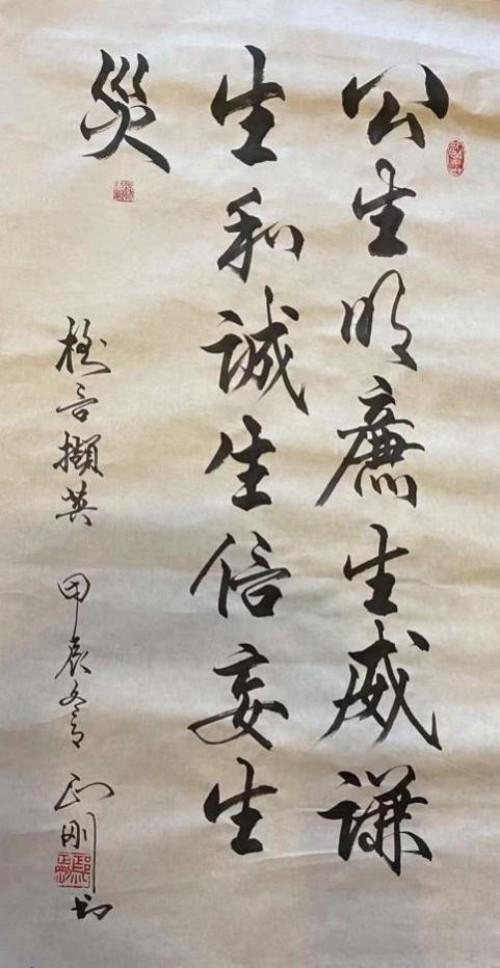 公生明廉生威謙
生和誠生信妄生
災
格言擷英 甲辰冬 正刚书